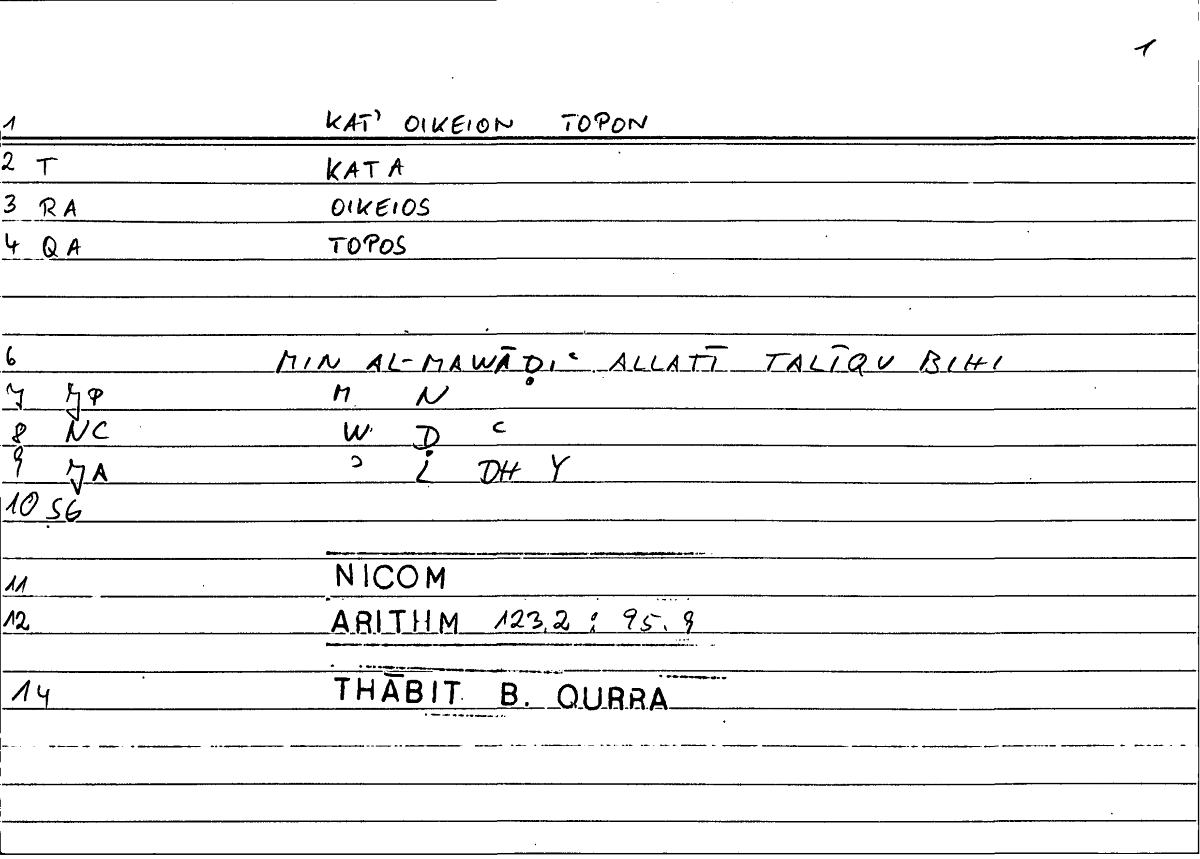 1
1 KAT' OIKEION TOPON
2 T KATA
3 RA OIKEIOS
4 QA TOPOS
6 MIN AL-MAWĀḌIʿ ALLATĪ TALĪQU BIHI
7 M N
8 NC W Ḍ ʿ
9 ʾ L DH Y
10 SG
11 NICOM
12 ARITHM 123.2 ; 95.9
14 THĀBIT B. QURRA